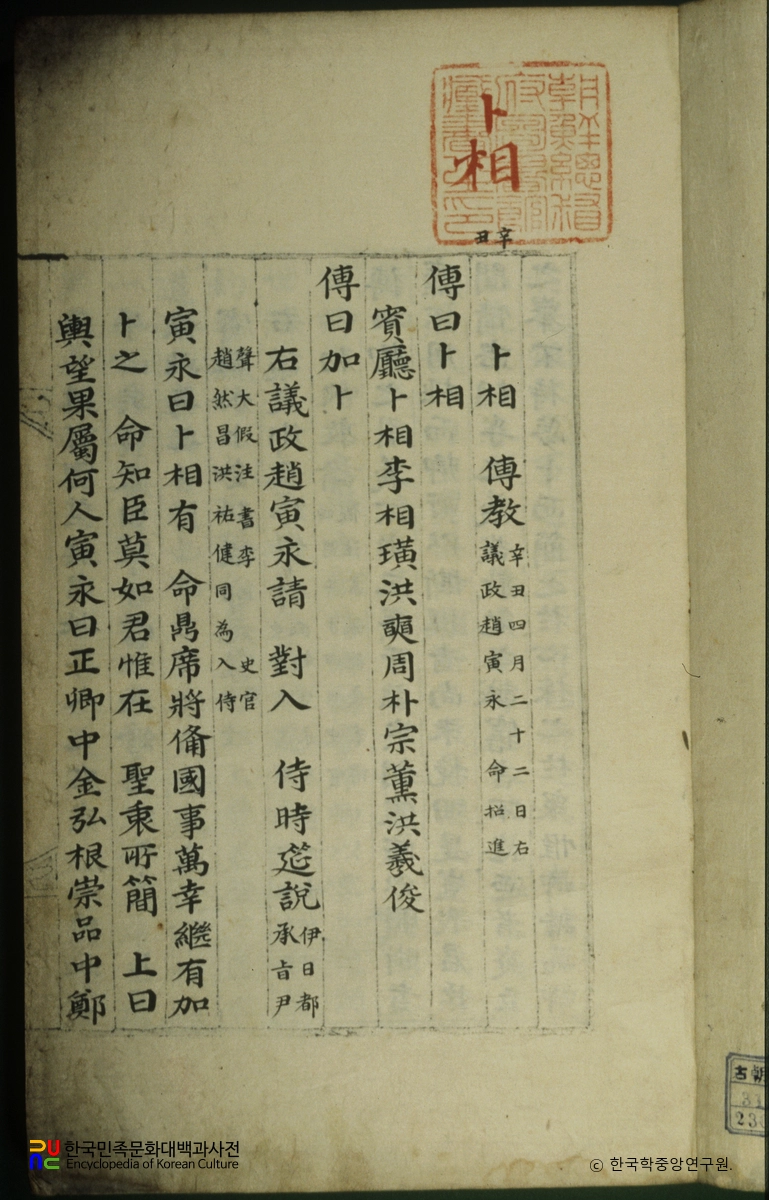 朝鮮總督府圖書館藏書之印
卜相
辛丑
卜相 傳教 辛丑四月二十二日右
議政趙寅永 命招進
傳曰卜相
賓廳卜相李相璜洪奭周朴宗薰洪羲俊
傳曰加卜
右議政趙寅永請 對入 侍時筵說 伊日都
承旨尹
聲大假注書李 史官
趙然昌洪祐健同為入侍
寅永曰卜相有 命鼎席將備國事萬幸繼有加
卜之 命知臣莫如君惟在 聖衷所簡 上曰
輿望果屬何人寅永曰正卿中金弘根崇品中鄭
古朝
31
한국민족문화대백과사전
Encyclopedia of Korean Culture
© 한국학중앙연구원.